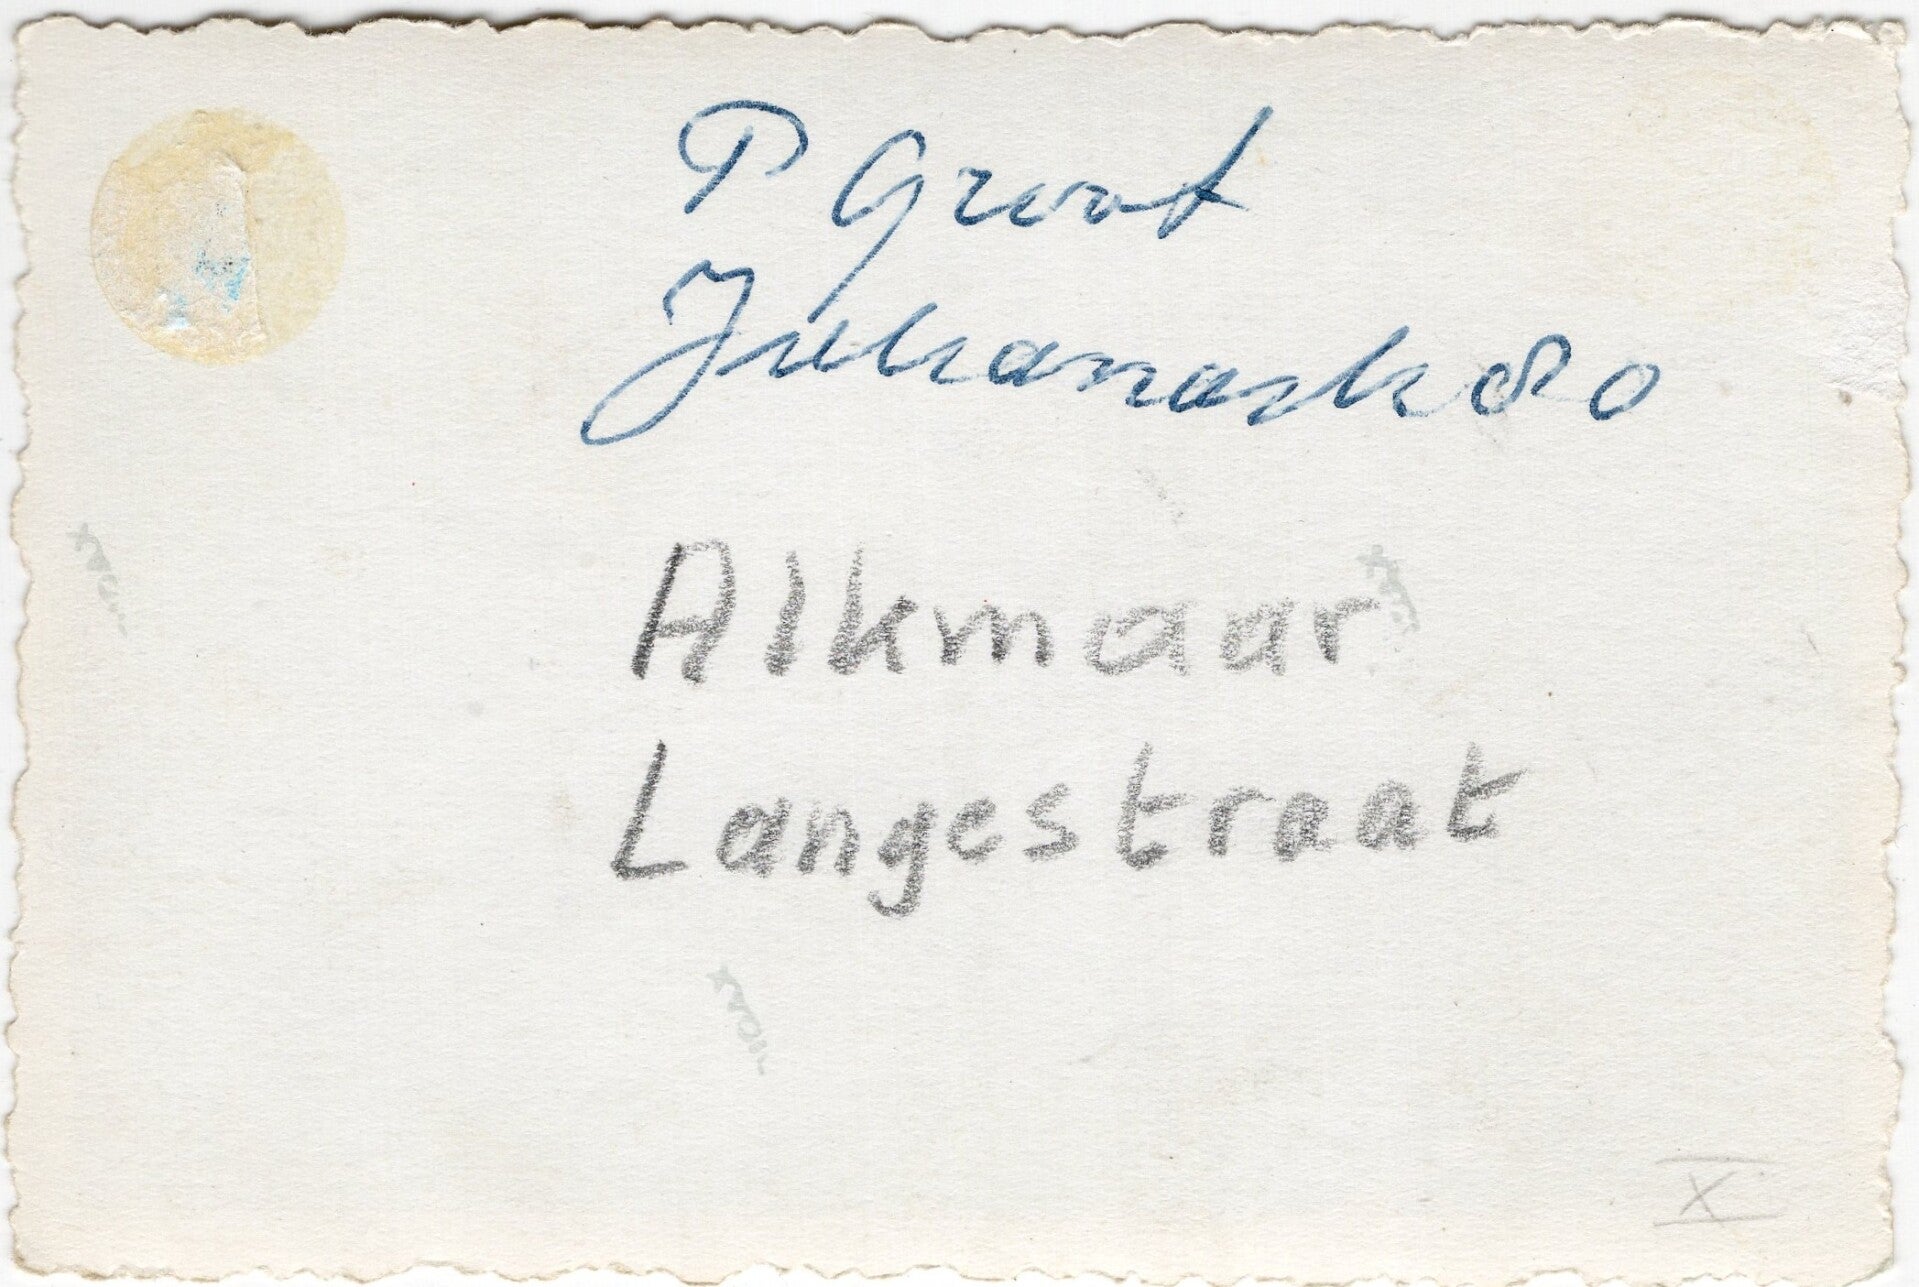 P Groot
Julianastr 80
Alkmaar
Langestraat
X